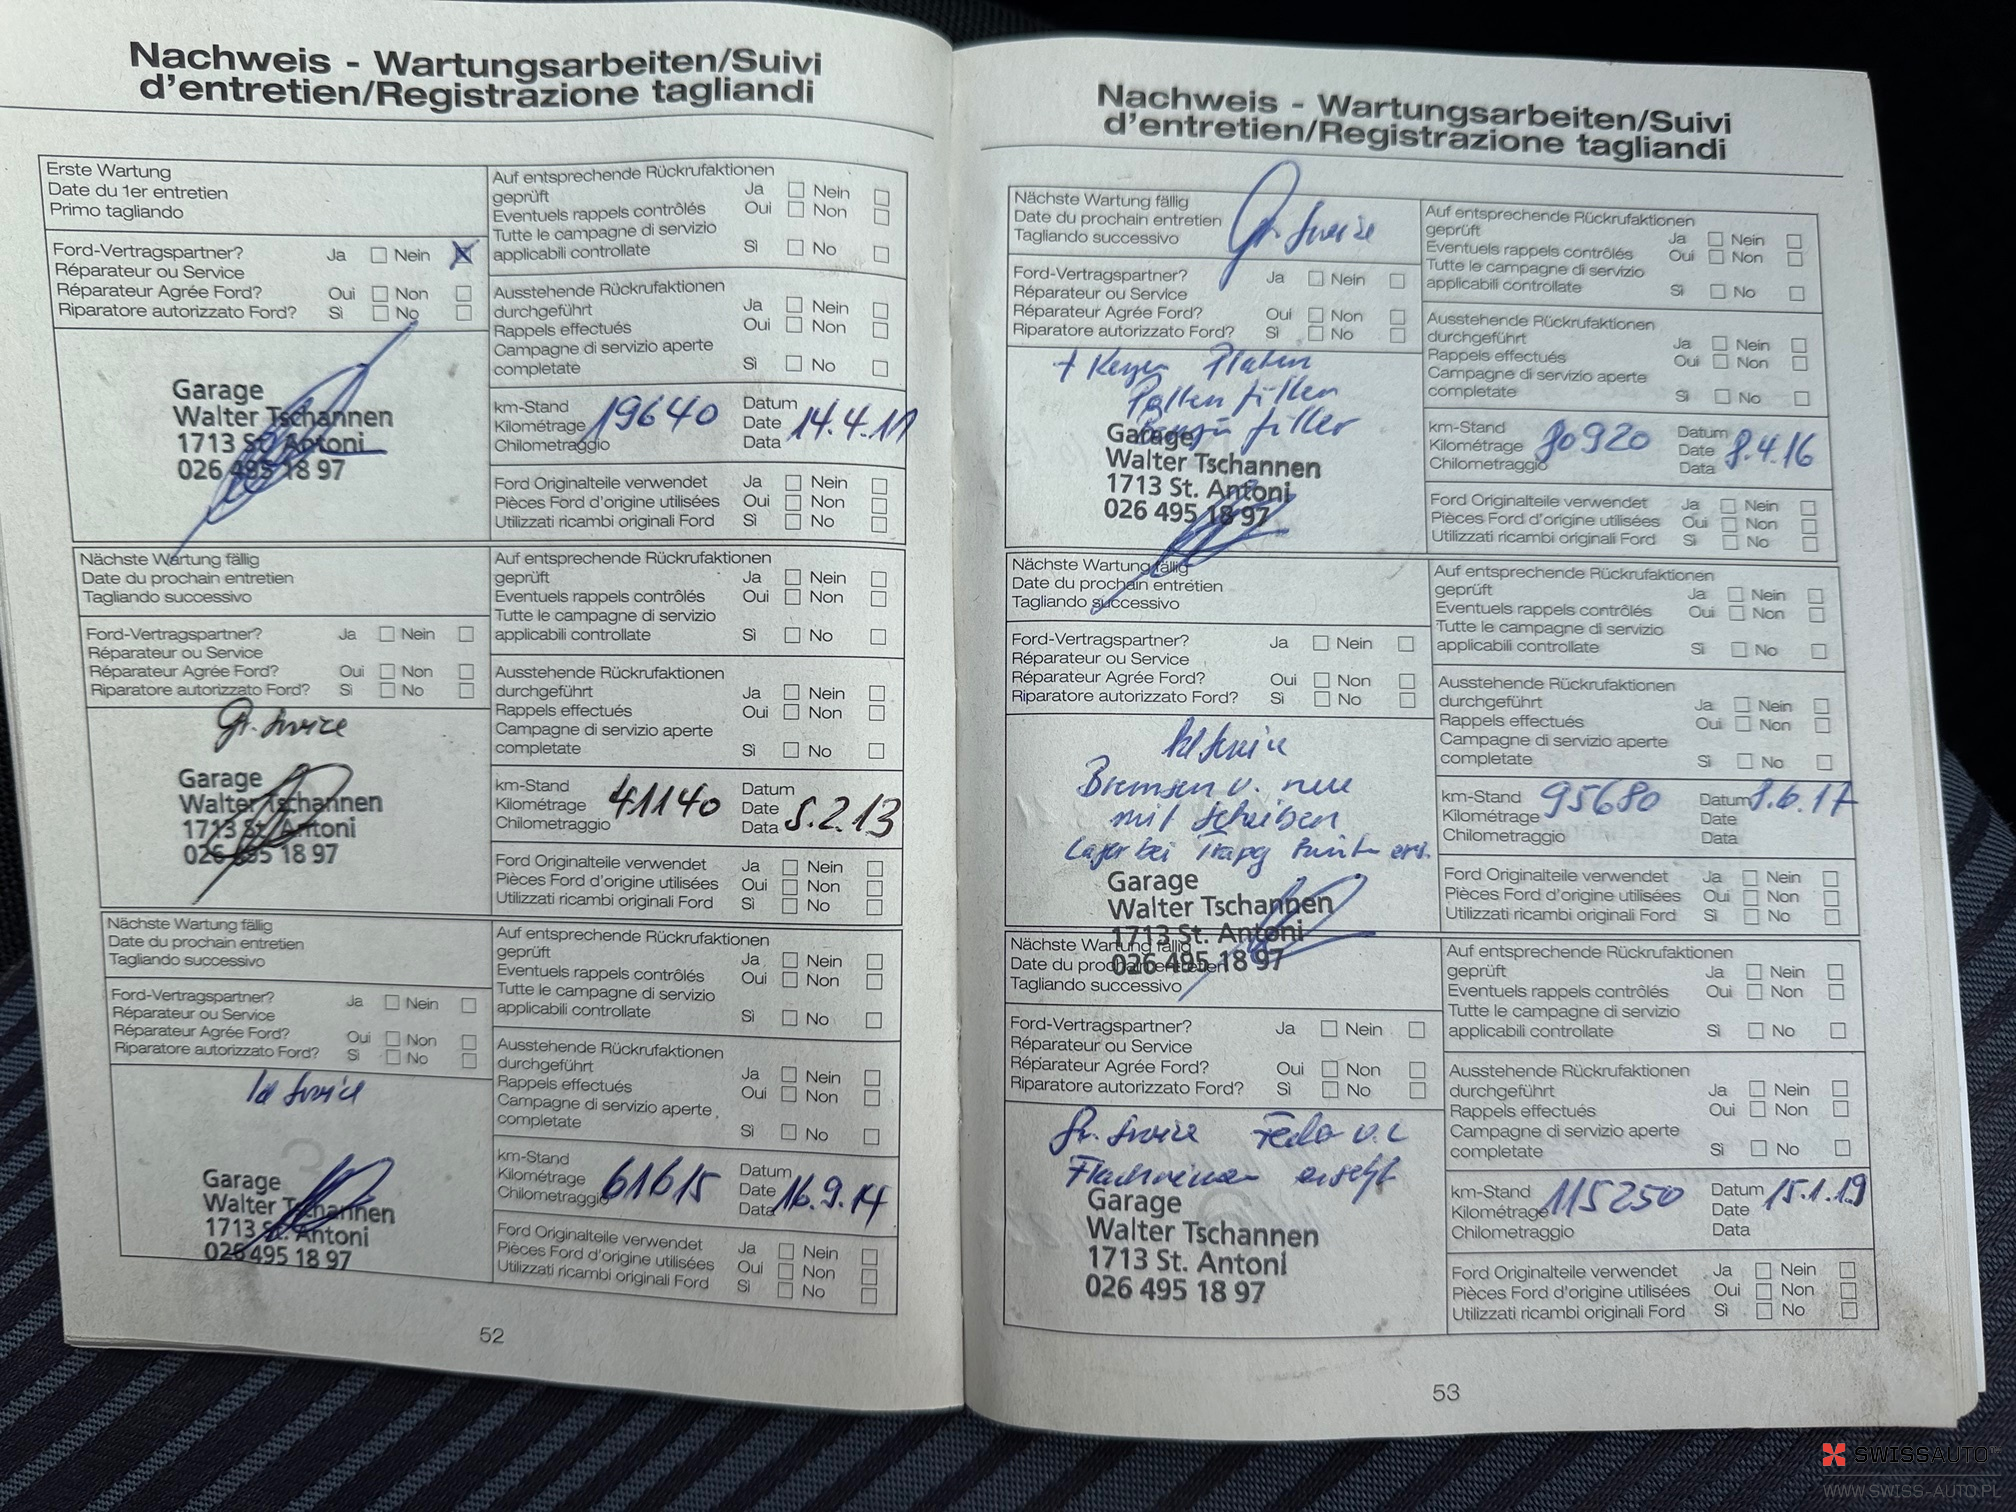 Nachweis - Wartungsarbeiten/Suivi
d'entretien/Registrazione tagliandi
Erste Wartung
Date du 1er entretien
Primo tagliando
Ford-Vertragspartner? Ja Nein
Réparateur ou Service
Réparateur Agrée Ford? Oui Non
Riparatore autorizzato Ford? Sì No
Garage
Walter Tschannen
1713 St. Antoni
026 495 18 97
Auf entsprechende Rückrufaktionen
geprüft Ja Nein
Eventuels rappels contrôlés Oui Non
Tutte le campagne di servizio
applicabili controllate Sì No
Ausstehende Rückrufaktionen
durchgeführt Ja Nein
Rappels effectués Oui Non
Campagne di servizio aperte
completate Sì No
km-Stand Datum
Kilométrage 19640 Date 14.4.11
Chilometraggio Data
Ford Originalteile verwendet Ja Nein
Pièces Ford d'origine utilisées Oui Non
Utilizzati ricambi originali Ford Sì No
Nächste Wartung fällig
Date du prochain entretien
Tagliando successivo
Ford-Vertragspartner? Ja Nein
Réparateur ou Service
Réparateur Agrée Ford? Oui Non
Riparatore autorizzato Ford? Sì No
Gr. Service
Garage
Walter Tschannen
1713 St. Antoni
026 495 18 97
Auf entsprechende Rückrufaktionen
geprüft Ja Nein
Eventuels rappels contrôlés Oui Non
Tutte le campagne di servizio
applicabili controllate Sì No
Ausstehende Rückrufaktionen
durchgeführt Ja Nein
Rappels effectués Oui Non
Campagne di servizio aperte
completate Sì No
km-Stand Datum
Kilométrage 41140 Date 5.2.13
Chilometraggio Data
Ford Originalteile verwendet Ja Nein
Pièces Ford d'origine utilisées Oui Non
Utilizzati ricambi originali Ford Sì No
Nächste Wartung fällig
Date du prochain entretien
Tagliando successivo
Ford-Vertragspartner? Ja Nein
Réparateur ou Service
Réparateur Agrée Ford? Oui Non
Riparatore autorizzato Ford? Sì No
Service
Garage
Walter Tschannen
1713 St. Antoni
026 495 18 97
Auf entsprechende Rückrufaktionen
geprüft Ja Nein
Eventuels rappels contrôlés Oui Non
Tutte le campagne di servizio
applicabili controllate Sì No
Ausstehende Rückrufaktionen
durchgeführt Ja Nein
Rappels effectués Oui Non
Campagne di servizio aperte
completate Sì No
km-Stand Datum
Kilométrage 61615 Date 16.9.14
Chilometraggio Data
Ford Originalteile verwendet Ja Nein
Pièces Ford d'origine utilisées Oui Non
Utilizzati ricambi originali Ford Sì No
52
Nachweis - Wartungsarbeiten/Suivi
d'entretien/Registrazione tagliandi
Nächste Wartung fällig
Date du prochain entretien Gr. Service
Tagliando successivo
Ford-Vertragspartner? Ja Nein
Réparateur ou Service
Réparateur Agrée Ford? Oui Non
Riparatore autorizzato Ford? Sì No
+ Kerzen
Pollenfilter
Benzinfilter
Garage
Walter Tschannen
1713 St. Antoni
026 495 18 97
Auf entsprechende Rückrufaktionen
geprüft Ja Nein
Eventuels rappels contrôlés Oui Non
Tutte le campagne di servizio
applicabili controllate Sì No
Ausstehende Rückrufaktionen
durchgeführt Ja Nein
Rappels effectués Oui Non
Campagne di servizio aperte
completate Sì No
km-Stand Datum
Kilométrage 80920 Date 8.4.16
Chilometraggio Data
Ford Originalteile verwendet Ja Nein
Pièces Ford d'origine utilisées Oui Non
Utilizzati ricambi originali Ford Sì No
Nächste Wartung fällig
Date du prochain entretien
Tagliando successivo
Ford-Vertragspartner? Ja Nein
Réparateur ou Service
Réparateur Agrée Ford? Oui Non
Riparatore autorizzato Ford? Sì No
Service
Bremsen v. neu
mit Scheiben
Lager bei
Garage
Walter Tschannen
1713 St. Antoni
026 495 18 97
Auf entsprechende Rückrufaktionen
geprüft Ja Nein
Eventuels rappels contrôlés Oui Non
Tutte le campagne di servizio
applicabili controllate Sì No
Ausstehende Rückrufaktionen
durchgeführt Ja Nein
Rappels effectués Oui Non
Campagne di servizio aperte
completate Sì No
km-Stand Datum 8.6.17
Kilométrage 95680 Date
Chilometraggio Data
Ford Originalteile verwendet Ja Nein
Pièces Ford d'origine utilisées Oui Non
Utilizzati ricambi originali Ford Sì No
Nächste Wartung fällig
Date du prochain entretien
Tagliando successivo
Ford-Vertragspartner? Ja Nein
Réparateur ou Service
Réparateur Agrée Ford? Oui Non
Riparatore autorizzato Ford? Sì No
Gr. Service Feder v. L
Flachriemen ersetzt
Garage
Walter Tschannen
1713 St. Antoni
026 495 18 97
Auf entsprechende Rückrufaktionen
geprüft Ja Nein
Eventuels rappels contrôlés Oui Non
Tutte le campagne di servizio
applicabili controllate Sì No
Ausstehende Rückrufaktionen
durchgeführt Ja Nein
Rappels effectués Oui Non
Campagne di servizio aperte
completate Sì No
km-Stand Datum 15.1.19
Kilométrage 115250 Date
Chilometraggio Data
Ford Originalteile verwendet Ja Nein
Pièces Ford d'origine utilisées Oui Non
Utilizzati ricambi originali Ford Sì No
53
SWISSAUTO
WWW.SWISS-AUTO.PL